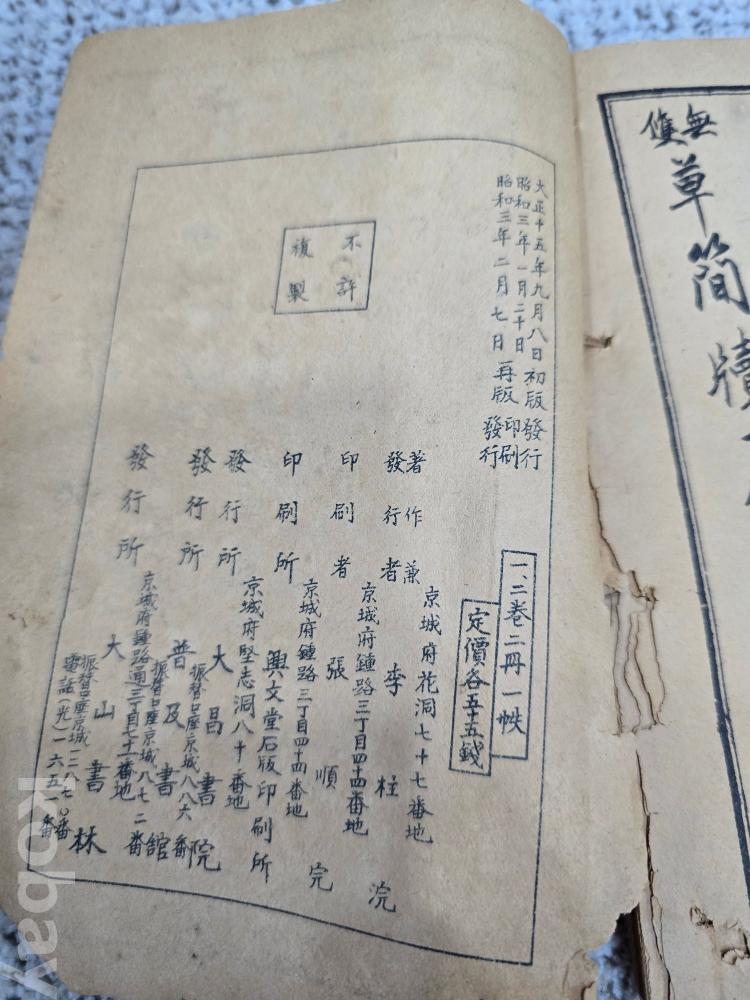 無雙
草簡牘
大正十五年九月八日初版發行
昭和三年一月二十日印刷
昭和三年二月七日再版發行
不許
複製
一、二卷二冊一帙
定價各五十五錢
京城府花洞七十七番地
著作兼
發行者 李柱浣
京城府鍾路三丁目四十四番地
印刷者 張順完
京城府鍾路三丁目四十四番地
印刷所 興文堂石版印刷所
京城府堅志洞八十番地
發行所 大昌書院
振替口座京城八八六番
發行所 普及書館
振替口座京城八七二番
京城府鍾路通三丁目七十一番地
發行所 大山書林
振替口座京城一二八七〇番
電話(光)一六五一番
kobay